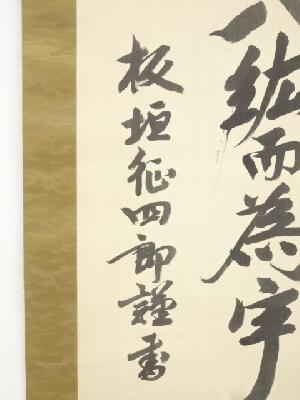 八紘而為宇
板垣征四郎謹書